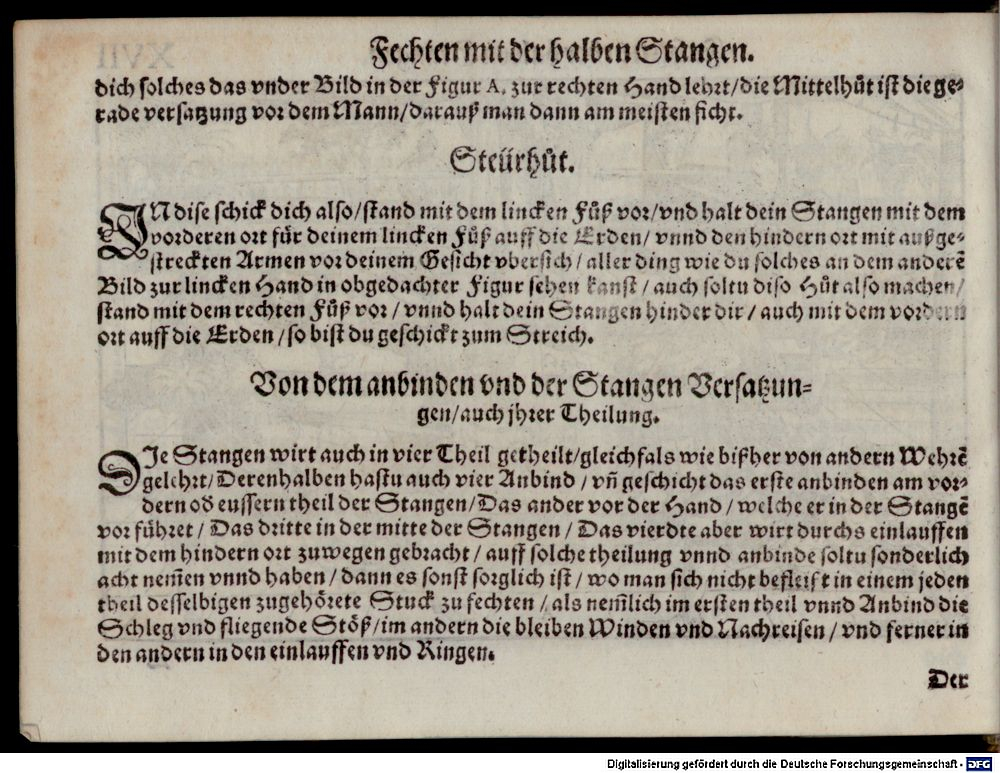 Fechten mit der halben Stangen.
dich solches das vnder Bild in der Figur A. zur rechten Hand lehrt/die Mittelhůt ist die ge⸗
rade versatzung vor dem Mann/darauß man dann am meisten ficht.
Steürhůt.
IN dise schick dich also/stand mit dem lincken Fůß vor/vnd halt dein Stangen mit dem
vorderen ort für deinem lincken Fůß auff die Erden/ vnnd den hindern ort mit außge⸗
streckten Armen vor deinem Gesicht vbersich/ aller ding wie du solches an dem anderē
Bild zur lincken Hand in obgedachter Figur sehen kanst/ auch soltu diso Hůt also machen/
stand mit dem rechten Fůß vor/ vnnd halt dein Stangen hinder dir/ auch mit dem vordern
ort auff die Erden/so bist du geschickt zum Streich.
Von dem anbinden vnd der Stangen Versatzun⸗
gen/auch jhrer Theilung.
DIe Stangen wirt auch in vier Theil getheilt/gleichfals wie bißher von andern Wehrē
gelehrt/Derenhalben hastu auch vier Anbind/ vñ geschicht das erste anbinden am vor⸗
dern od eussern theil der Stangen/Das ander vor der Hand/ welche er in der Stangē
vor führet/ Das dritte in der mitte der Stangen/ Das vierdte aber wirt durchs einlauffen
mit dem hindern ort zuwegen gebracht/ auff solche theilung vnnd anbinde soltu sonderlich
acht nem̃en vnnd haben/ dann es sonst sorglich ist/ wo man sich nicht befleist in einem jeden
theil desselbigen zugehörete Stuck zu fechten/ als nem̃lich im ersten theil vnnd Anbind die
Schleg vnd fliegende Stöß/im andern die bleiben Winden vnd Nachreisen/ vnd ferner in
den andern in den einlauffen vnd Ringen.
Der
Digitalisierung gefördert durch die Deutsche Forschungsgemeinschaft - DFG